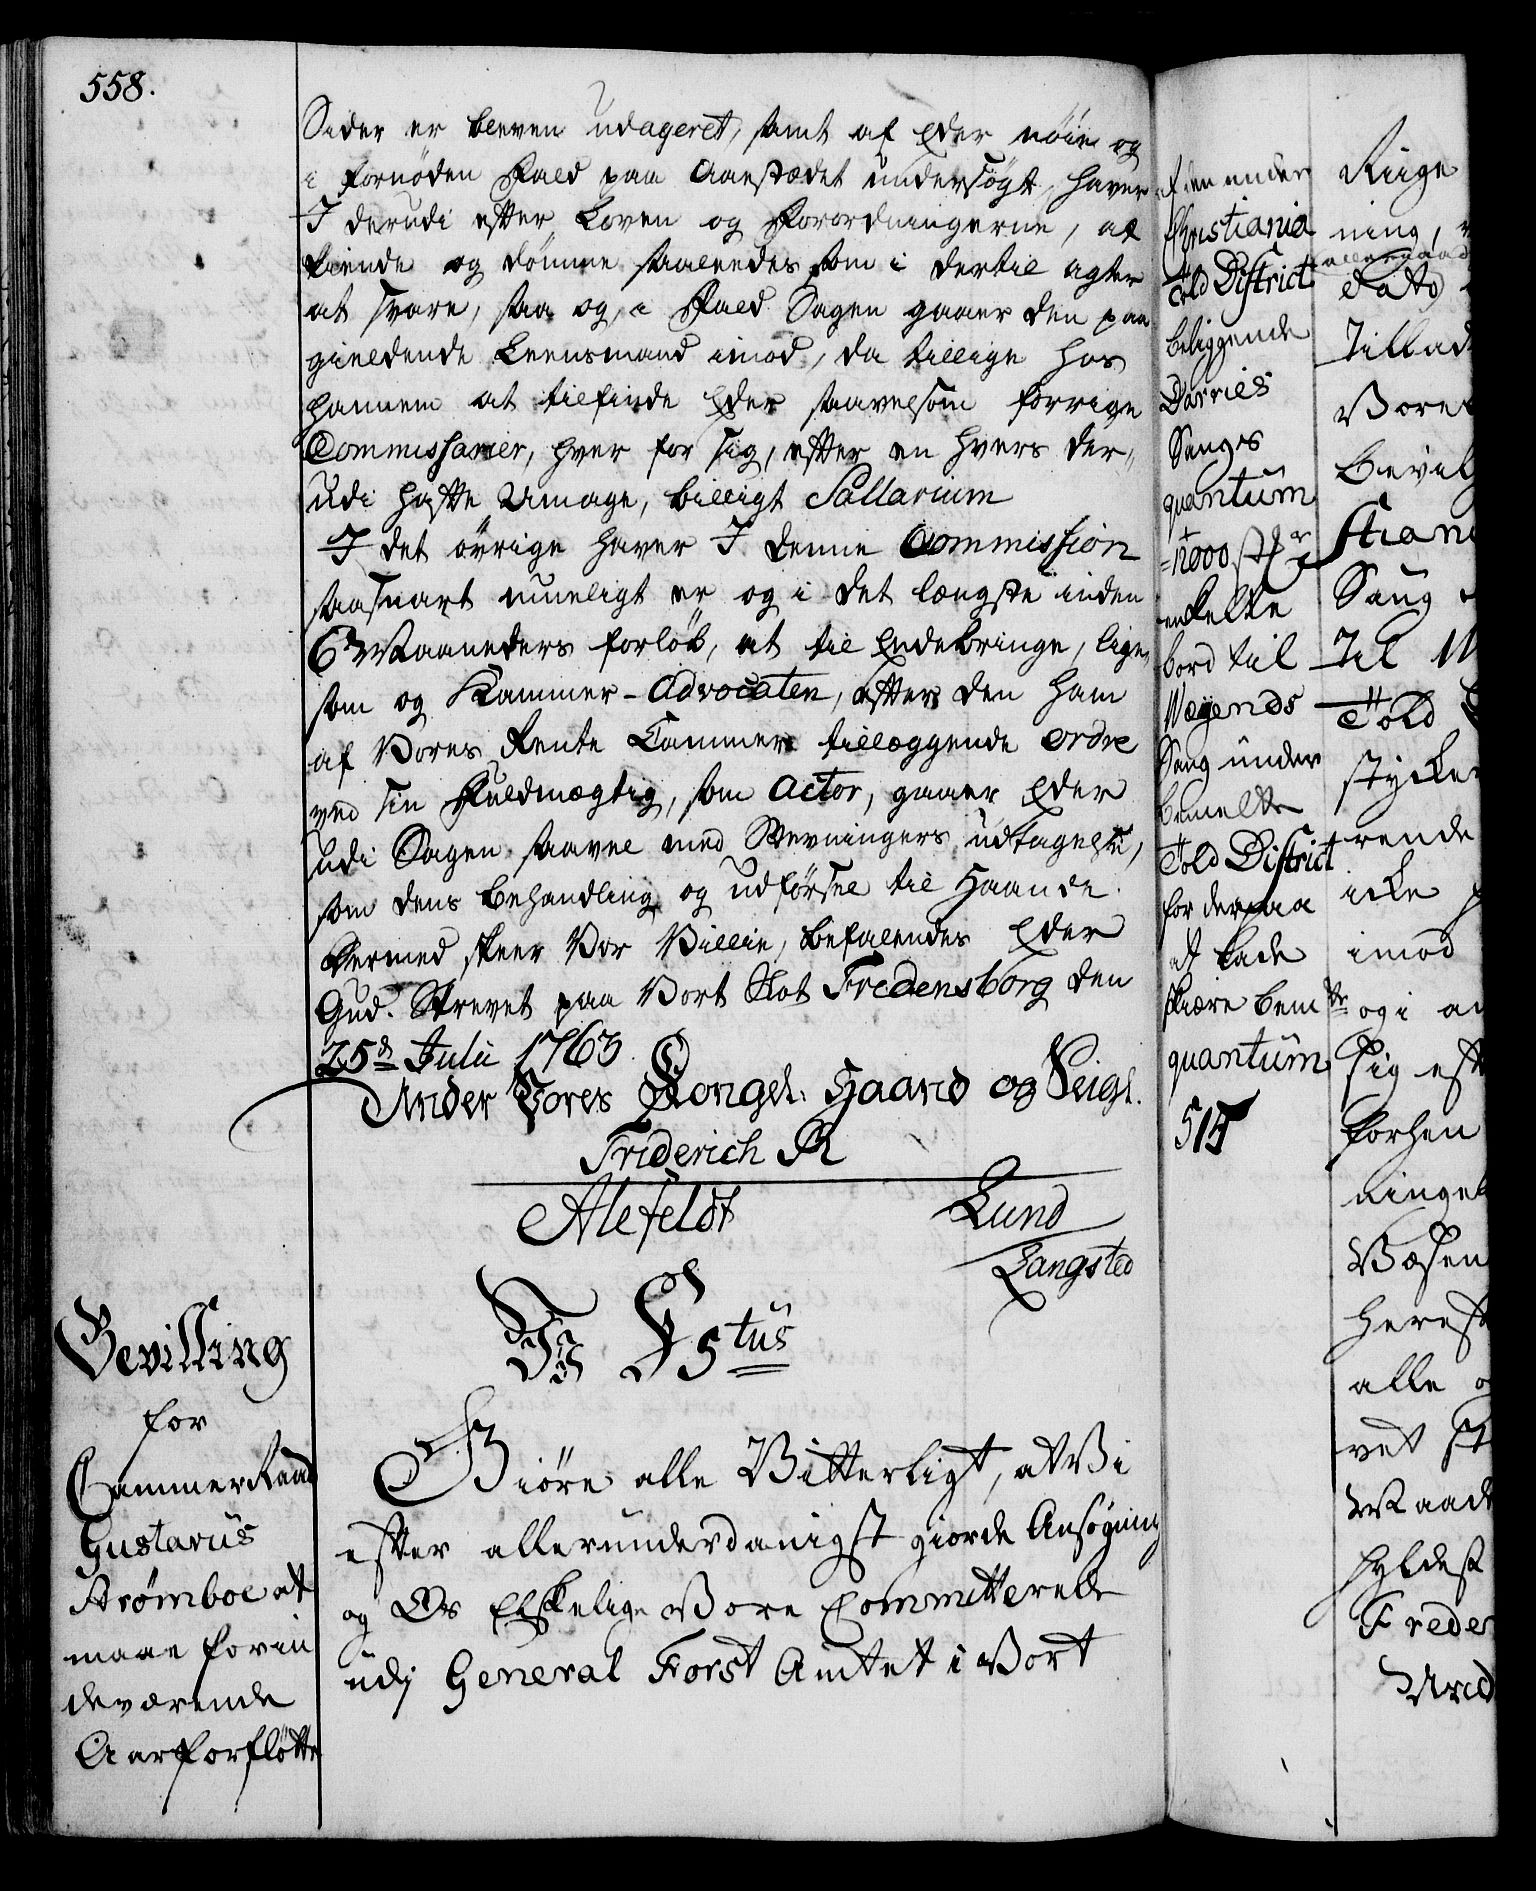 558.
Sider er bleven udageret, samt af Eder nöie og
i fornöden Fald paa Aastædet undersögt, haver
I derudi efter Loven og Forordningerne, at
kiende og dömme saaledes som i dertil agter
at svare, saa og, i Fald Sagen gaaer den paa
gieldende Leensmand imod, da tillige hos
hannem at tilfinde Eder saavelsom forrige
Commissarier, hver for sig, efter en hvers der-
udi hafte Umage, billigt Sallarium
I det övrige haver I denne Commission
saasnart mueligt er og i det længste inden
6 Maaneders forlöb, at til Endebringe, lige-
som og Kammer-Advocaten, efter den ham
af Vores Rente Cammer tillæggende ordre
ved sin Fuldmægtig, som Actor, gaaer Eder
udi Sagen saavel med Stevningers udtagelse,
som dens behandling og udförsel til Haande.
Dermed skeer Vor Villie, befalendes Eder
Gud. Skrevet paa Vort Slot Fredensborg den
25de Julii 1763
Under Vores Kongel. Haand og Seigl.
Friderich R
Alefeldt Lund
Langsted
Bevilling
for
CammerRaad
Gustavus
Strømboe at
maae for in
deværende
Aar forflötte
Vi F5tus
Giöre alle Vitterligt, at Vi
efter allerunderdanigst giorde Ansögning
og Os Elskelige Vore Committerede
udj General Forst Amtet i Vort
af en under
Christiania
Told District
beliggende
Darries
Saugs
quantum
12000 st
enkelte
bord til
Nægends
Saug under
bemelte
Told District
for derpaa
at lade
skiære bemte
quantum
515
Riige
ning,
dato
Tillad
Vores
bevilg
stian
Saug
Til
Told
stycker
rende
icke
imod
og i an
sig eft
forhen
ninge
Væsen
herest
alle
vet
Maade
hyldest
Freder
Und